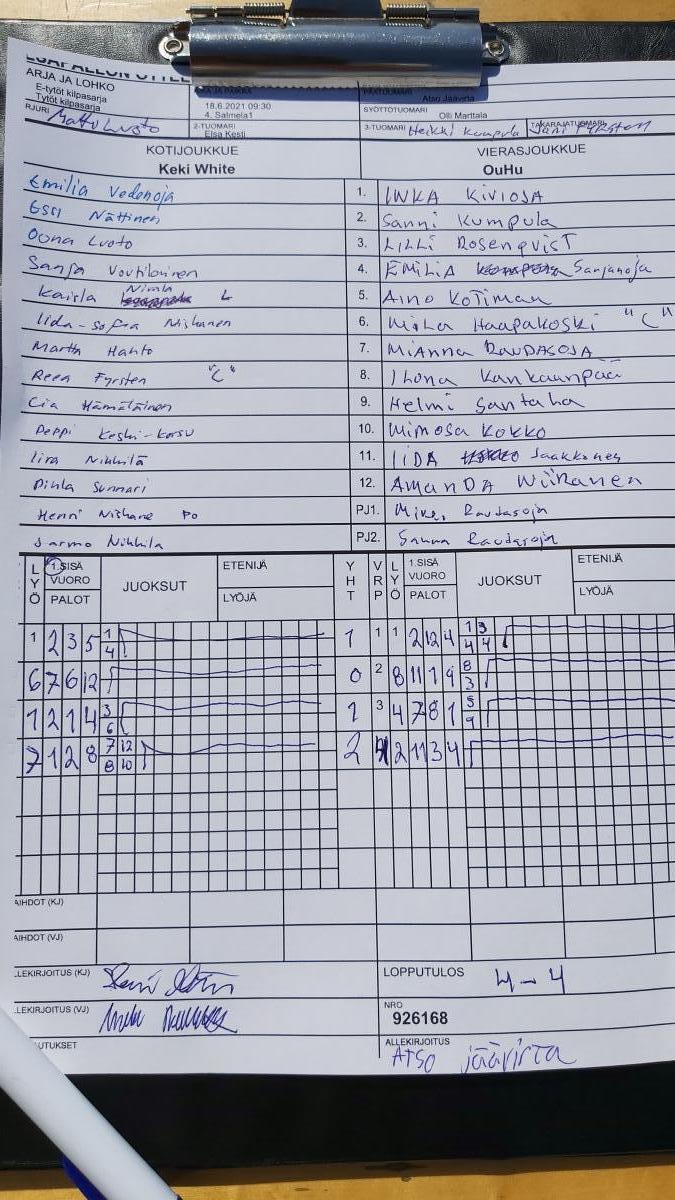 ARJA JA LOHKO
E-tytöt kilpasarja
Tytöt kilpasarja
18.6.2021 09:30
4. Salmela1
Atso Jäävirta
SYÖTTÖTUOMARI
Olli Marttala
RJURI Luoto
2-TUOMARI
Elsa Kesti
3-TUOMARI Heikki Kumpula
TAKARAJATUOMARI Fyrsten
KOTIJOUKKUE VIERASJOUKKUE
Keki White OuHu
Emilia Vedenoja 1. INKA KIVIOJA
Essi Nättinen 2. Sanni Kumpula
Oona Luoto 3. LILLI ROSENQVIST
Sanja Voutilainen 4. EMILIA Sarjanoja
Kaisla Nimla L 5. AINO KOTIMAN
Iida-Sofia Niskanen 6. Haapakoski "C"
Martta Hahto 7. MIANNA RAUDASOJA
Reea Fyrsten "C" 8. Ilona Kankaanpää
Cia Hämäläinen 9. Helmi Santaha
Peppi Keski-Korsu 10. MIMOSA KOKKO
Iira Nikkilä 11. IIDA Jaakkonen
Pinla Sunnari 12. AMANDA WiiRanen
Henri Niskane PO PJ1. Raudasoja
Jarmo Nikkila PJ2. Sanna Raudasoja
LYÖ 1.SISÄ VUORO PALOT JUOKSUT ETENIJÄ LYÖJÄ YHT VRP LYÖ 1.SISÄ VUORO PALOT JUOKSUT ETENIJÄ LYÖJÄ
1 2 3 5 1 4 1 1 1 2 12 4 1 3 4 4
6 7 6 12 0 2 8 11 1 9 8 3
1 2 1 4 3 6 1 3 4 7 8 1 5 9
7 1 2 8 7 12 8 10 2 4 2 11 3 4
AIHDOT (KJ)
AIHDOT (VJ)
LLEKIRJOITUS (KJ)
LOPPUTULOS 4-4
LLEKIRJOITUS (VJ)
NRO
926168
UTUKSET
ALLEKIRJOITUS
ATSO jäävirta